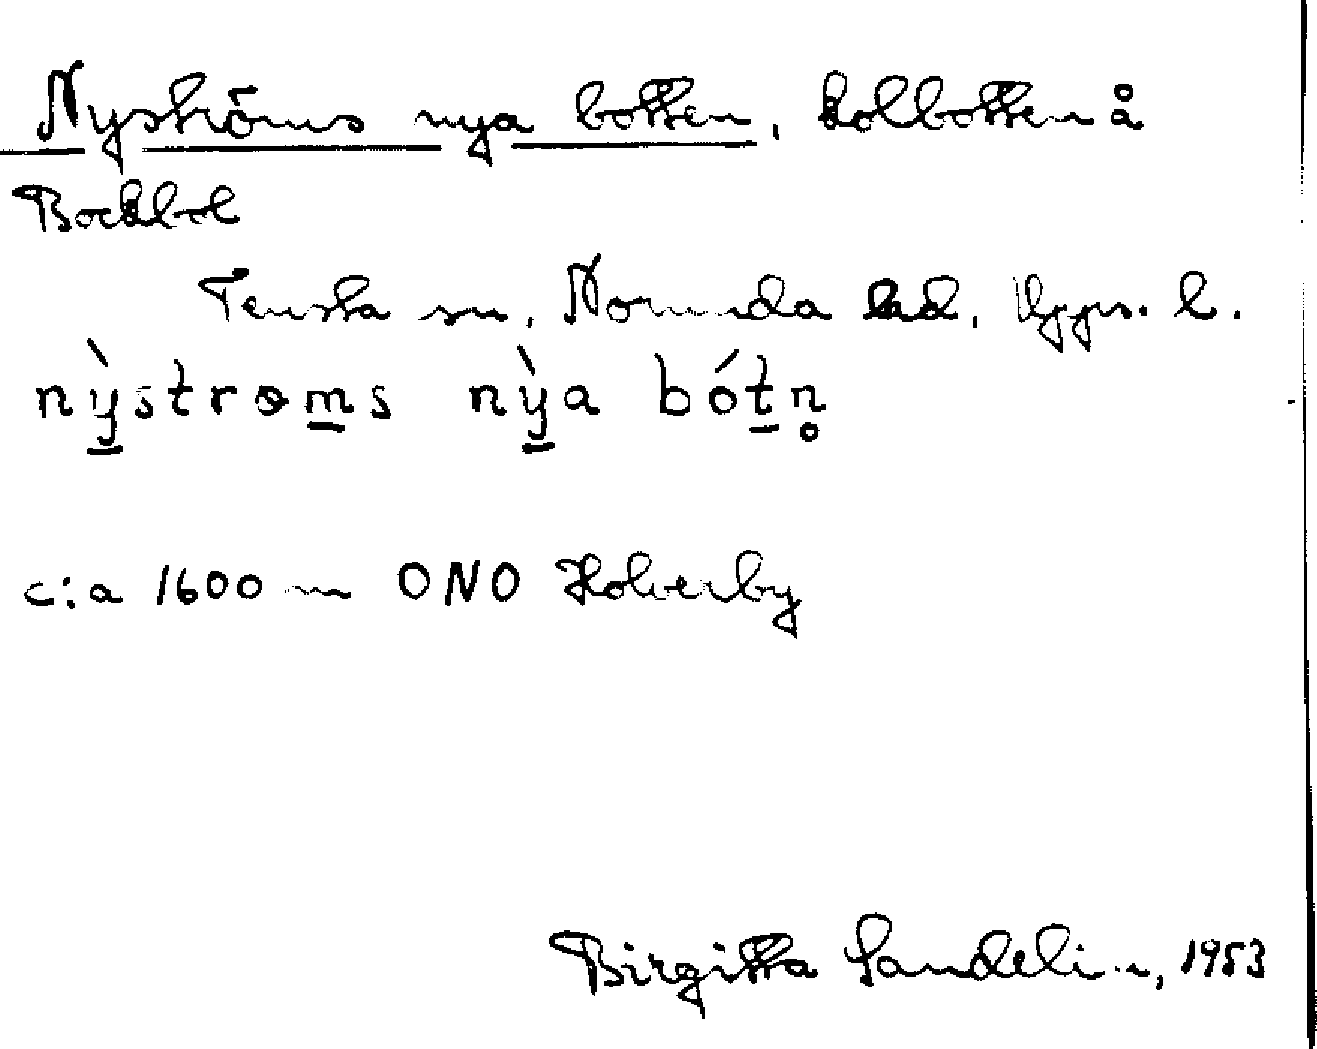 Nyströms nya botten, kolbotten å
Bockbol
Tensta sn, Norunda hd, Upps. l.
nỳ̠strɵm̠s nỳ̠a bót̠n̥
c:a 1600 m ONO Holverby
Birgitta Sandelin, 1953